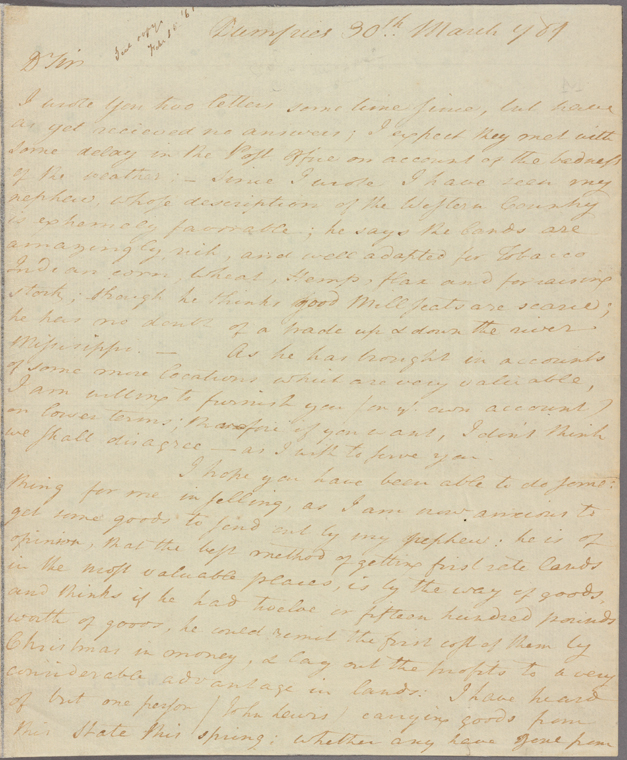 Dumfries 30th March 1789
Dr Sir
I wrote You two letters some time since, but have
as yet recieved no answers; I expect they met with
some delay in the Post Office on account of the badness
of the weather: — Since I wrote I have seen my
nephew, whose description of the Western Country
is extremely favorable; he says the lands are
amazingly rich, and well adapted for Tobacco
Indian corn, Wheat, Hemp, flax and for raising
stock; though he thinks good Mill seats are scarce;
he has no doubt of a trade up & down the river
Missisippi. — As he has brought in accounts
of some more locations which are very valuable,
I am willing to furnish you (on yr. own account)
on lower terms; therefore if you want, I don't think
we shall disagree — as I wish to serve you.
I hope you have been able to do some-
thing for me in selling, as I am now anxious to
get some goods to send out by my nephew: he is of
opinion, that the best method of getting first rate lands
in the most valuable places, is by the way of goods,
and thinks if he had twelve or fifteen hundred pounds
worth of goods, he could remit the first cost of them by
Christmas in money, & lay out the profits to a very
considerable advantage in lands: I have heard
of but one person (John Lewis) carrying goods from
this State this spring: whether any have gone from